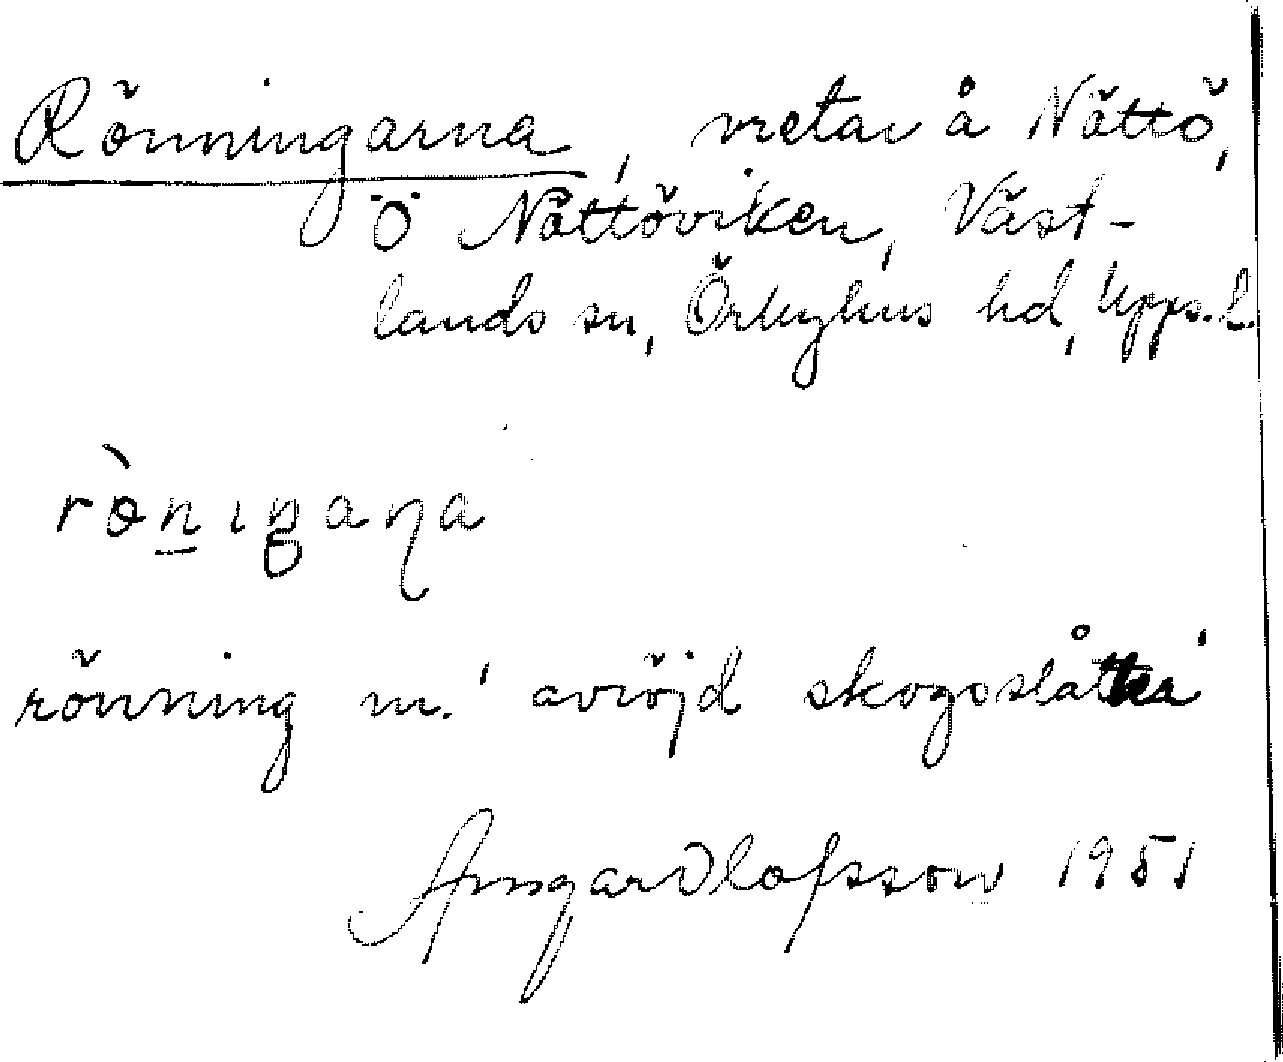 Rönningarna, vretar å Nåttö,
Ö Nåttöviken, Väst-
lands sn, Örbyhus hd, Upps. l.
rö̀nıŋaɳa
rönning m. 'avröjd skogsslåtter'
Ansgar Olofsson 1951